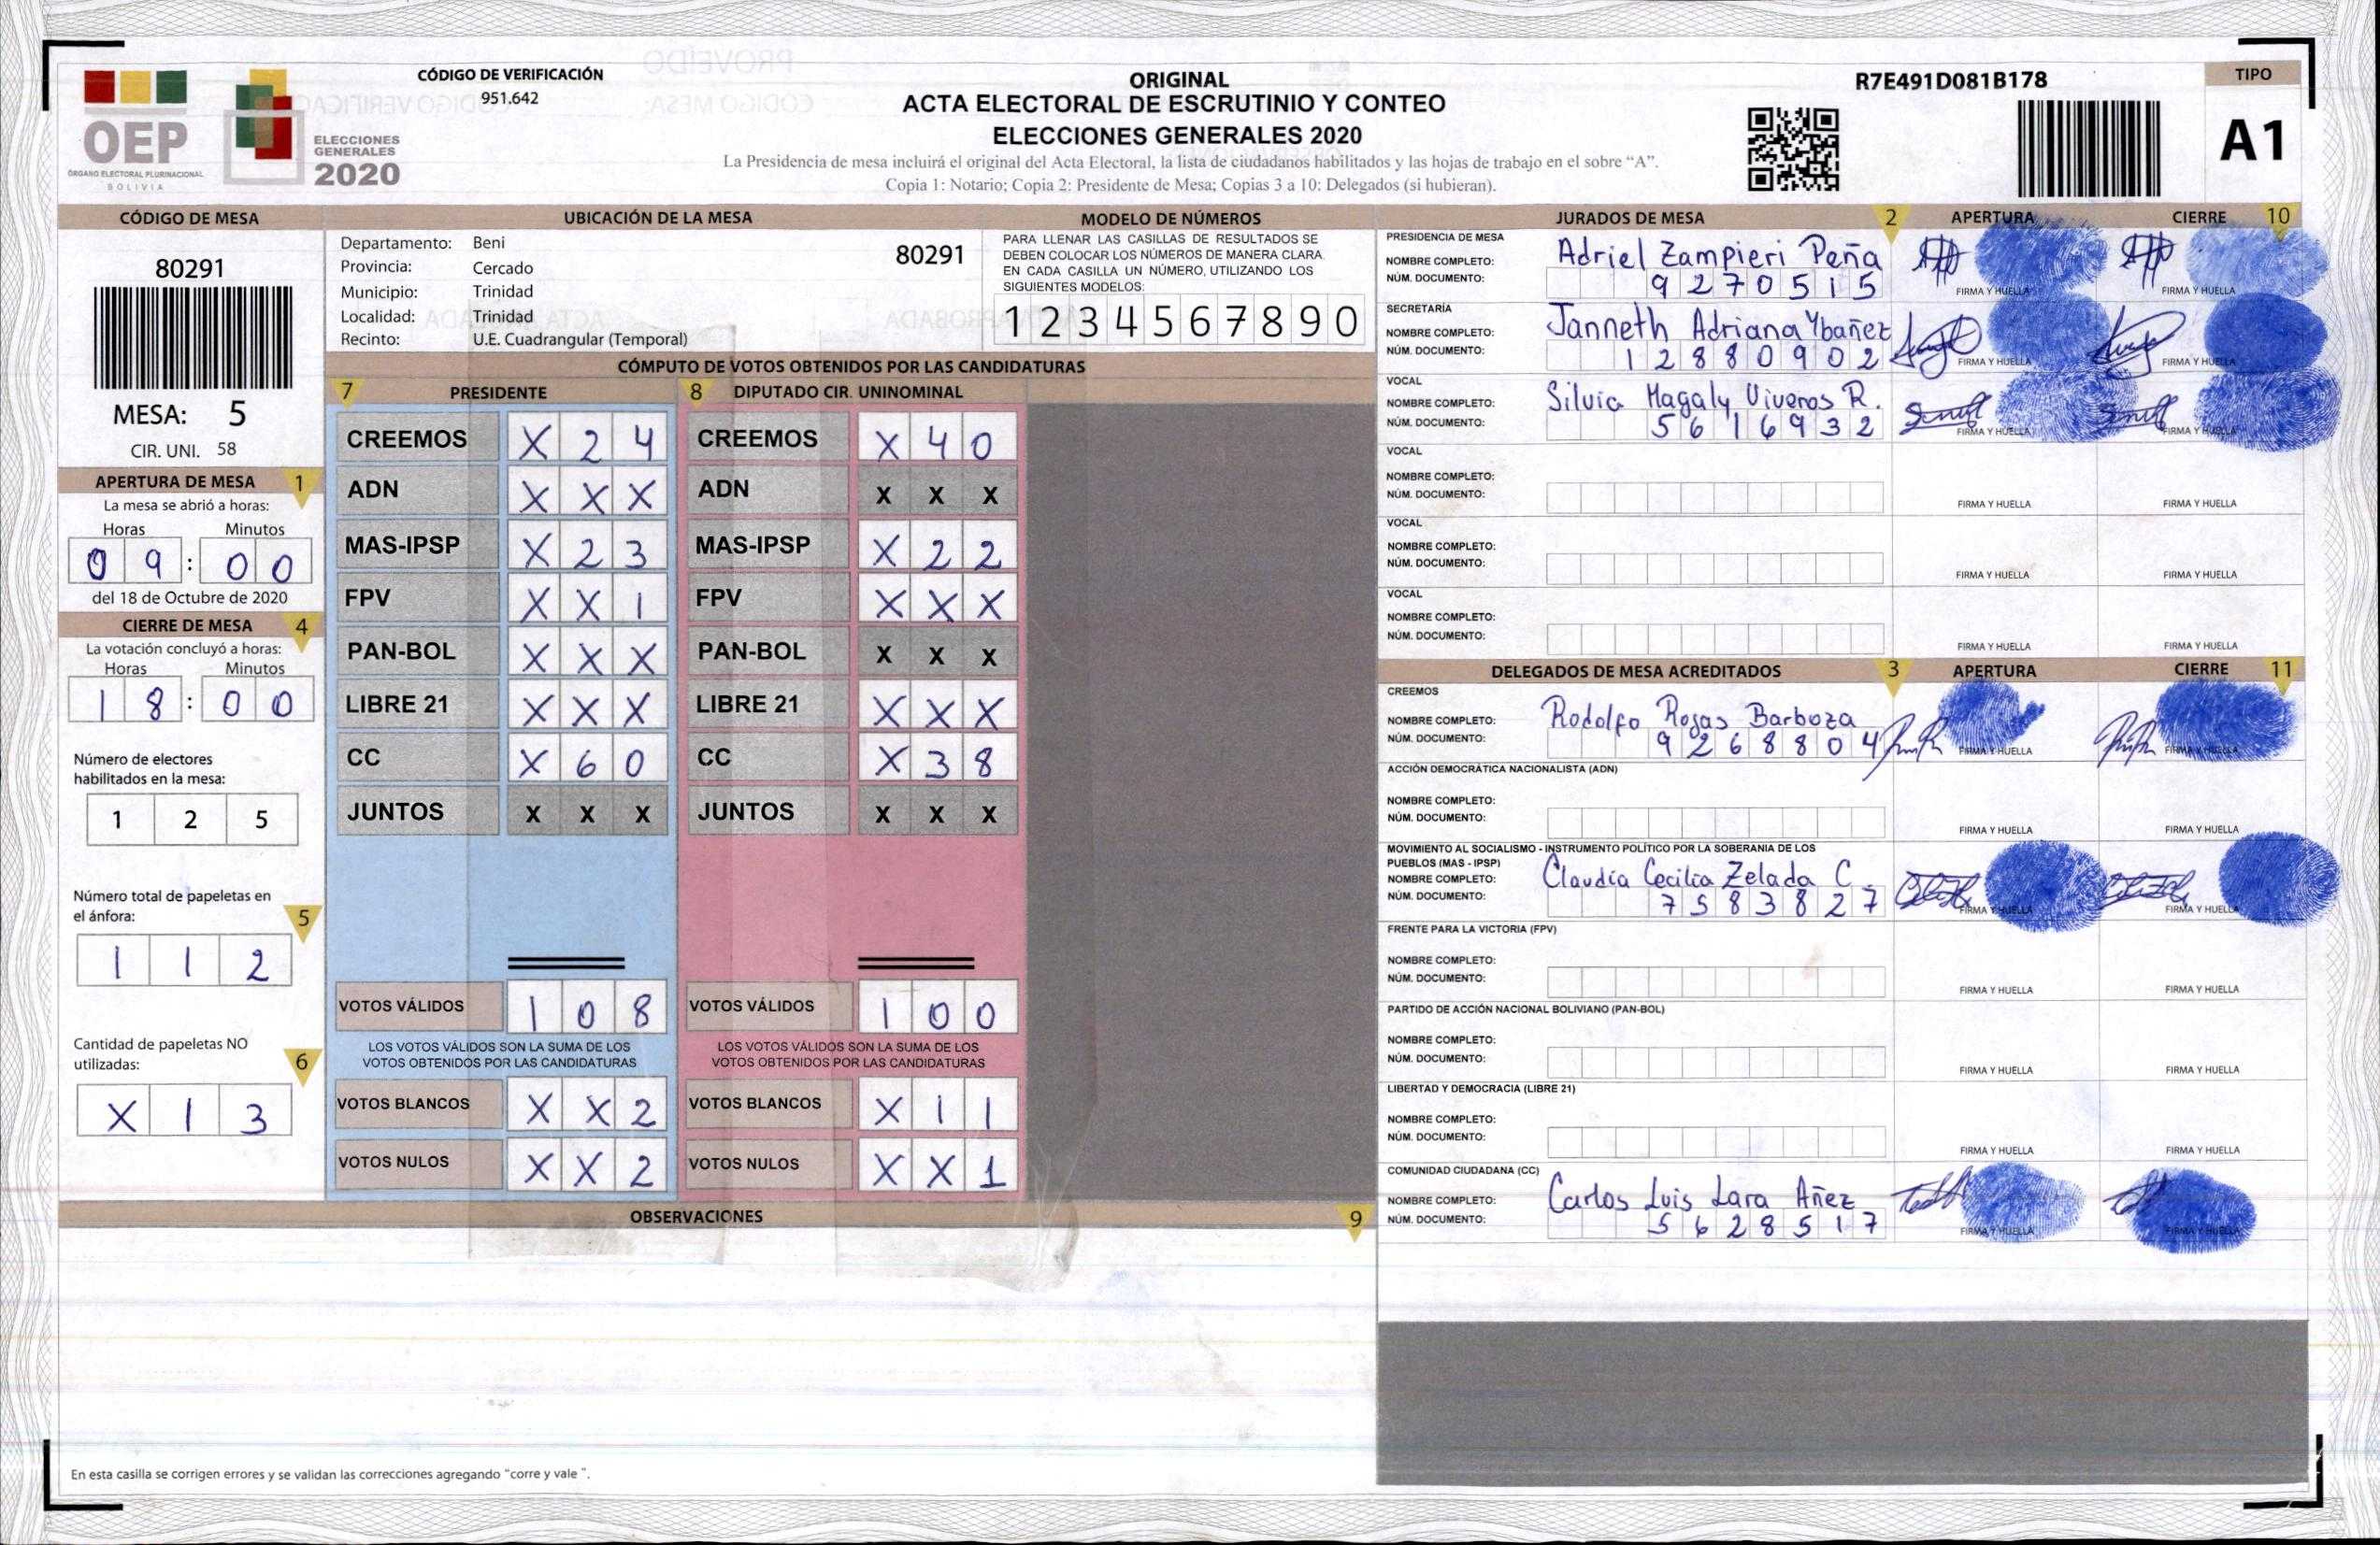 CÓDIGO DE VERIFICACIÓN
951.642
OEP
ÓRGANO ELECTORAL PLURINACIONAL
BOLIVIA
ELECCIONES
GENERALES
2020
ORIGINAL
ACTA ELECTORAL DE ESCRUTINIO Y CONTEO
ELECCIONES GENERALES 2020
La Presidencia de mesa incluirá el original del Acta Electoral, la lista de ciudadanos habilitados y las hojas de trabajo en el sobre “A”.
Copia 1: Notario; Copia 2: Presidente de Mesa; Copias 3 a 10: Delegados (si hubieran).
R7E491D081B178
TIPO
A1
CÓDIGO DE MESA
80291
MESA: 5
CIR. UNI. 58
APERTURA DE MESA 1
La mesa se abrió a horas:
Horas Minutos
09:00
del 18 de Octubre de 2020
CIERRE DE MESA 4
La votación concluyó a horas:
Horas Minutos
18:00
Número de electores
habilitados en la mesa:
1 2 5
Número total de papeletas en
el ánfora: 5
1 1 2
Cantidad de papeletas NO
utilizadas: 6
X 1 3
UBICACIÓN DE LA MESA
Departamento: Beni
80291
Provincia: Cercado
Municipio: Trinidad
Localidad: Trinidad
Recinto: U.E. Cuadrangular (Temporal)
MODELO DE NÚMEROS
PARA LLENAR LAS CASILLAS DE RESULTADOS SE
DEBEN COLOCAR LOS NÚMEROS DE MANERA CLARA
EN CADA CASILLA UN NÚMERO, UTILIZANDO LOS
SIGUIENTES MODELOS:
1 2 3 4 5 6 7 8 9 0
CÓMPUTO DE VOTOS OBTENIDOS POR LAS CANDIDATURAS
7 PRESIDENTE
CREEMOS X 2 4
ADN X X X
MAS-IPSP X 2 3
FPV X X 1
PAN-BOL X X X
LIBRE 21 X X X
CC X 6 0
JUNTOS X X X
VOTOS VÁLIDOS 1 0 8
LOS VOTOS VÁLIDOS SON LA SUMA DE LOS
VOTOS OBTENIDOS POR LAS CANDIDATURAS
VOTOS BLANCOS X X 2
VOTOS NULOS X X 2
8 DIPUTADO CIR. UNINOMINAL
CREEMOS X 4 0
ADN X X X
MAS-IPSP X 2 2
FPV X X X
PAN-BOL X X X
LIBRE 21 X X X
CC X 3 8
JUNTOS X X X
VOTOS VÁLIDOS 1 0 0
LOS VOTOS VÁLIDOS SON LA SUMA DE LOS
VOTOS OBTENIDOS POR LAS CANDIDATURAS
VOTOS BLANCOS X 1 1
VOTOS NULOS X X 1
OBSERVACIONES 9
En esta casilla se corrigen errores y se validan las correcciones agregando "corre y vale ".
JURADOS DE MESA 2 APERTURA CIERRE 10
PRESIDENCIA DE MESA
NOMBRE COMPLETO: Adriel Zampieri Peña
NÚM. DOCUMENTO: 9270515
FIRMA Y HUELLA FIRMA Y HUELLA
SECRETARÍA
NOMBRE COMPLETO: Janneth Adriana Ybañez
NÚM. DOCUMENTO: 12880902
FIRMA Y HUELLA FIRMA Y HUELLA
VOCAL
NOMBRE COMPLETO: Silvia Magaly Viveros R.
NÚM. DOCUMENTO: 5616932
FIRMA Y HUELLA FIRMA Y HUELLA
VOCAL
NOMBRE COMPLETO:
NÚM. DOCUMENTO:
FIRMA Y HUELLA FIRMA Y HUELLA
VOCAL
NOMBRE COMPLETO:
NÚM. DOCUMENTO:
FIRMA Y HUELLA FIRMA Y HUELLA
VOCAL
NOMBRE COMPLETO:
NÚM. DOCUMENTO:
FIRMA Y HUELLA FIRMA Y HUELLA
DELEGADOS DE MESA ACREDITADOS 3 APERTURA CIERRE 11
CREEMOS
NOMBRE COMPLETO: Rodolfo Rojas Barboza
NÚM. DOCUMENTO: 9268804
FIRMA Y HUELLA FIRMA Y HUELLA
ACCIÓN DEMOCRÁTICA NACIONALISTA (ADN)
NOMBRE COMPLETO:
NÚM. DOCUMENTO:
FIRMA Y HUELLA FIRMA Y HUELLA
MOVIMIENTO AL SOCIALISMO - INSTRUMENTO POLÍTICO POR LA SOBERANIA DE LOS
PUEBLOS (MAS - IPSP)
NOMBRE COMPLETO: Claudia Cecilia Zelada C.
NÚM. DOCUMENTO: 7583827
FIRMA Y HUELLA FIRMA Y HUELLA
FRENTE PARA LA VICTORIA (FPV)
NOMBRE COMPLETO:
NÚM. DOCUMENTO:
FIRMA Y HUELLA FIRMA Y HUELLA
PARTIDO DE ACCIÓN NACIONAL BOLIVIANO (PAN-BOL)
NOMBRE COMPLETO:
NÚM. DOCUMENTO:
FIRMA Y HUELLA FIRMA Y HUELLA
LIBERTAD Y DEMOCRACIA (LIBRE 21)
NOMBRE COMPLETO:
NÚM. DOCUMENTO:
FIRMA Y HUELLA FIRMA Y HUELLA
COMUNIDAD CIUDADANA (CC)
NOMBRE COMPLETO: Carlos Luis Lara Añez
NÚM. DOCUMENTO: 5628517
FIRMA Y HUELLA FIRMA Y HUELLA